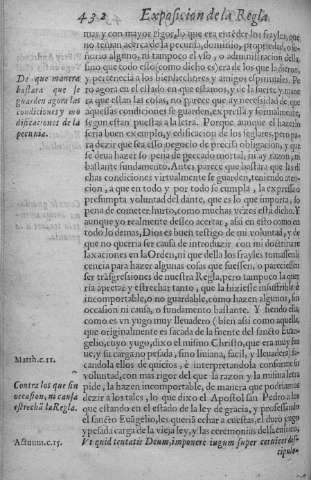 432
Exposicion de la Regla.
mas y con mayor rigor, lo que era entender los frayles, que
no tenian acerca de la pecunia, dominio, propriedad, o se-
ñorio alguno, ni tampoco el vso, o administracion della,
sino que todo ello (como dicho es) era de los que la dieron,
y pertenencia a los bienhechores y amigos spirituales. Pe
De que manera
ro agora en el estado en que estamos, y de la suerte y mane
bastara que se
ra que estan las cosas, no parece que ay necesidad de que
guarden agora las
aquellas condiciones se guarden, ex presa y formalmente,
condiciones y mo
segun estan puestas a la letra. Porque aunque el hazerlo
dificaciones de la
seria buen exemplo, y edificacion de los seglares, pero pa-
pecunia.
ra dezir que sea esso negocio de preciso obligacion, y que
se deua hazer so pena de peccado mortal, ni ay razon, ni
bastante fundamento. Antes parece que bastara que las di
chas condiciones virtualmente se guarden, teniendo aten-
cion, a que en todo y por todo se cumpla, la expressa o
presumpta voluntad del dante, que es lo que importa, so
pena de cometer hurto, como muchas vezes està dicho. Y
aunque yo realmente desseo acertar, assi en esto como en
todo lo demas, Dios es buen testigo de mi voluntad, y de
que no querria ser causa de introduzir con mi doctrina
laxaciones en la Orden, ni que della los frayles tomassen li
cencia para hazer algunas cosas que fuessen, o pareciessen
ser trãsgresiones de nuestra Regla, pero tampoco la quer
ria apretar y estrechar tanto, que la hiziesse insufrible e
incomportable, o no guardable, como hazen algunos, sin
occasion ni causa, o fundamento bastante. Y siendo ella
como es vn yugo muy lleuadero (bien assi como aquella
que originalmente es sacada de la fuente del sancto Euan-
gelio, cuyo yugo, dixo el mismo Christo, que era muy sua
Matth. c. 11.
ue, y su carga no pesada, sino liuiana, facil, y lleuadera) sa-
candola ellos de quicios, e interpretandola conforme su
voluntad, con mas rigor del que la razon y la misma letra
Contra los que sin
pide, la hazen incomportable, de manera que podriamos
occasion, ni causa
dezir a los tales, lo que dixo el Apostol san Pedro a los
estrechã la Regla.
que estando en el estado de la ley de gracia, y professando
el sancto Euãgelio, les queria echar a cuestas, el duro yugo
y pesada carga de la vieja ley, y ceremonias della en tiempo,
Actuum. c. 15.
Vt quid tentatis Deum, imponere iugum super ceruices dis-
cipulo-